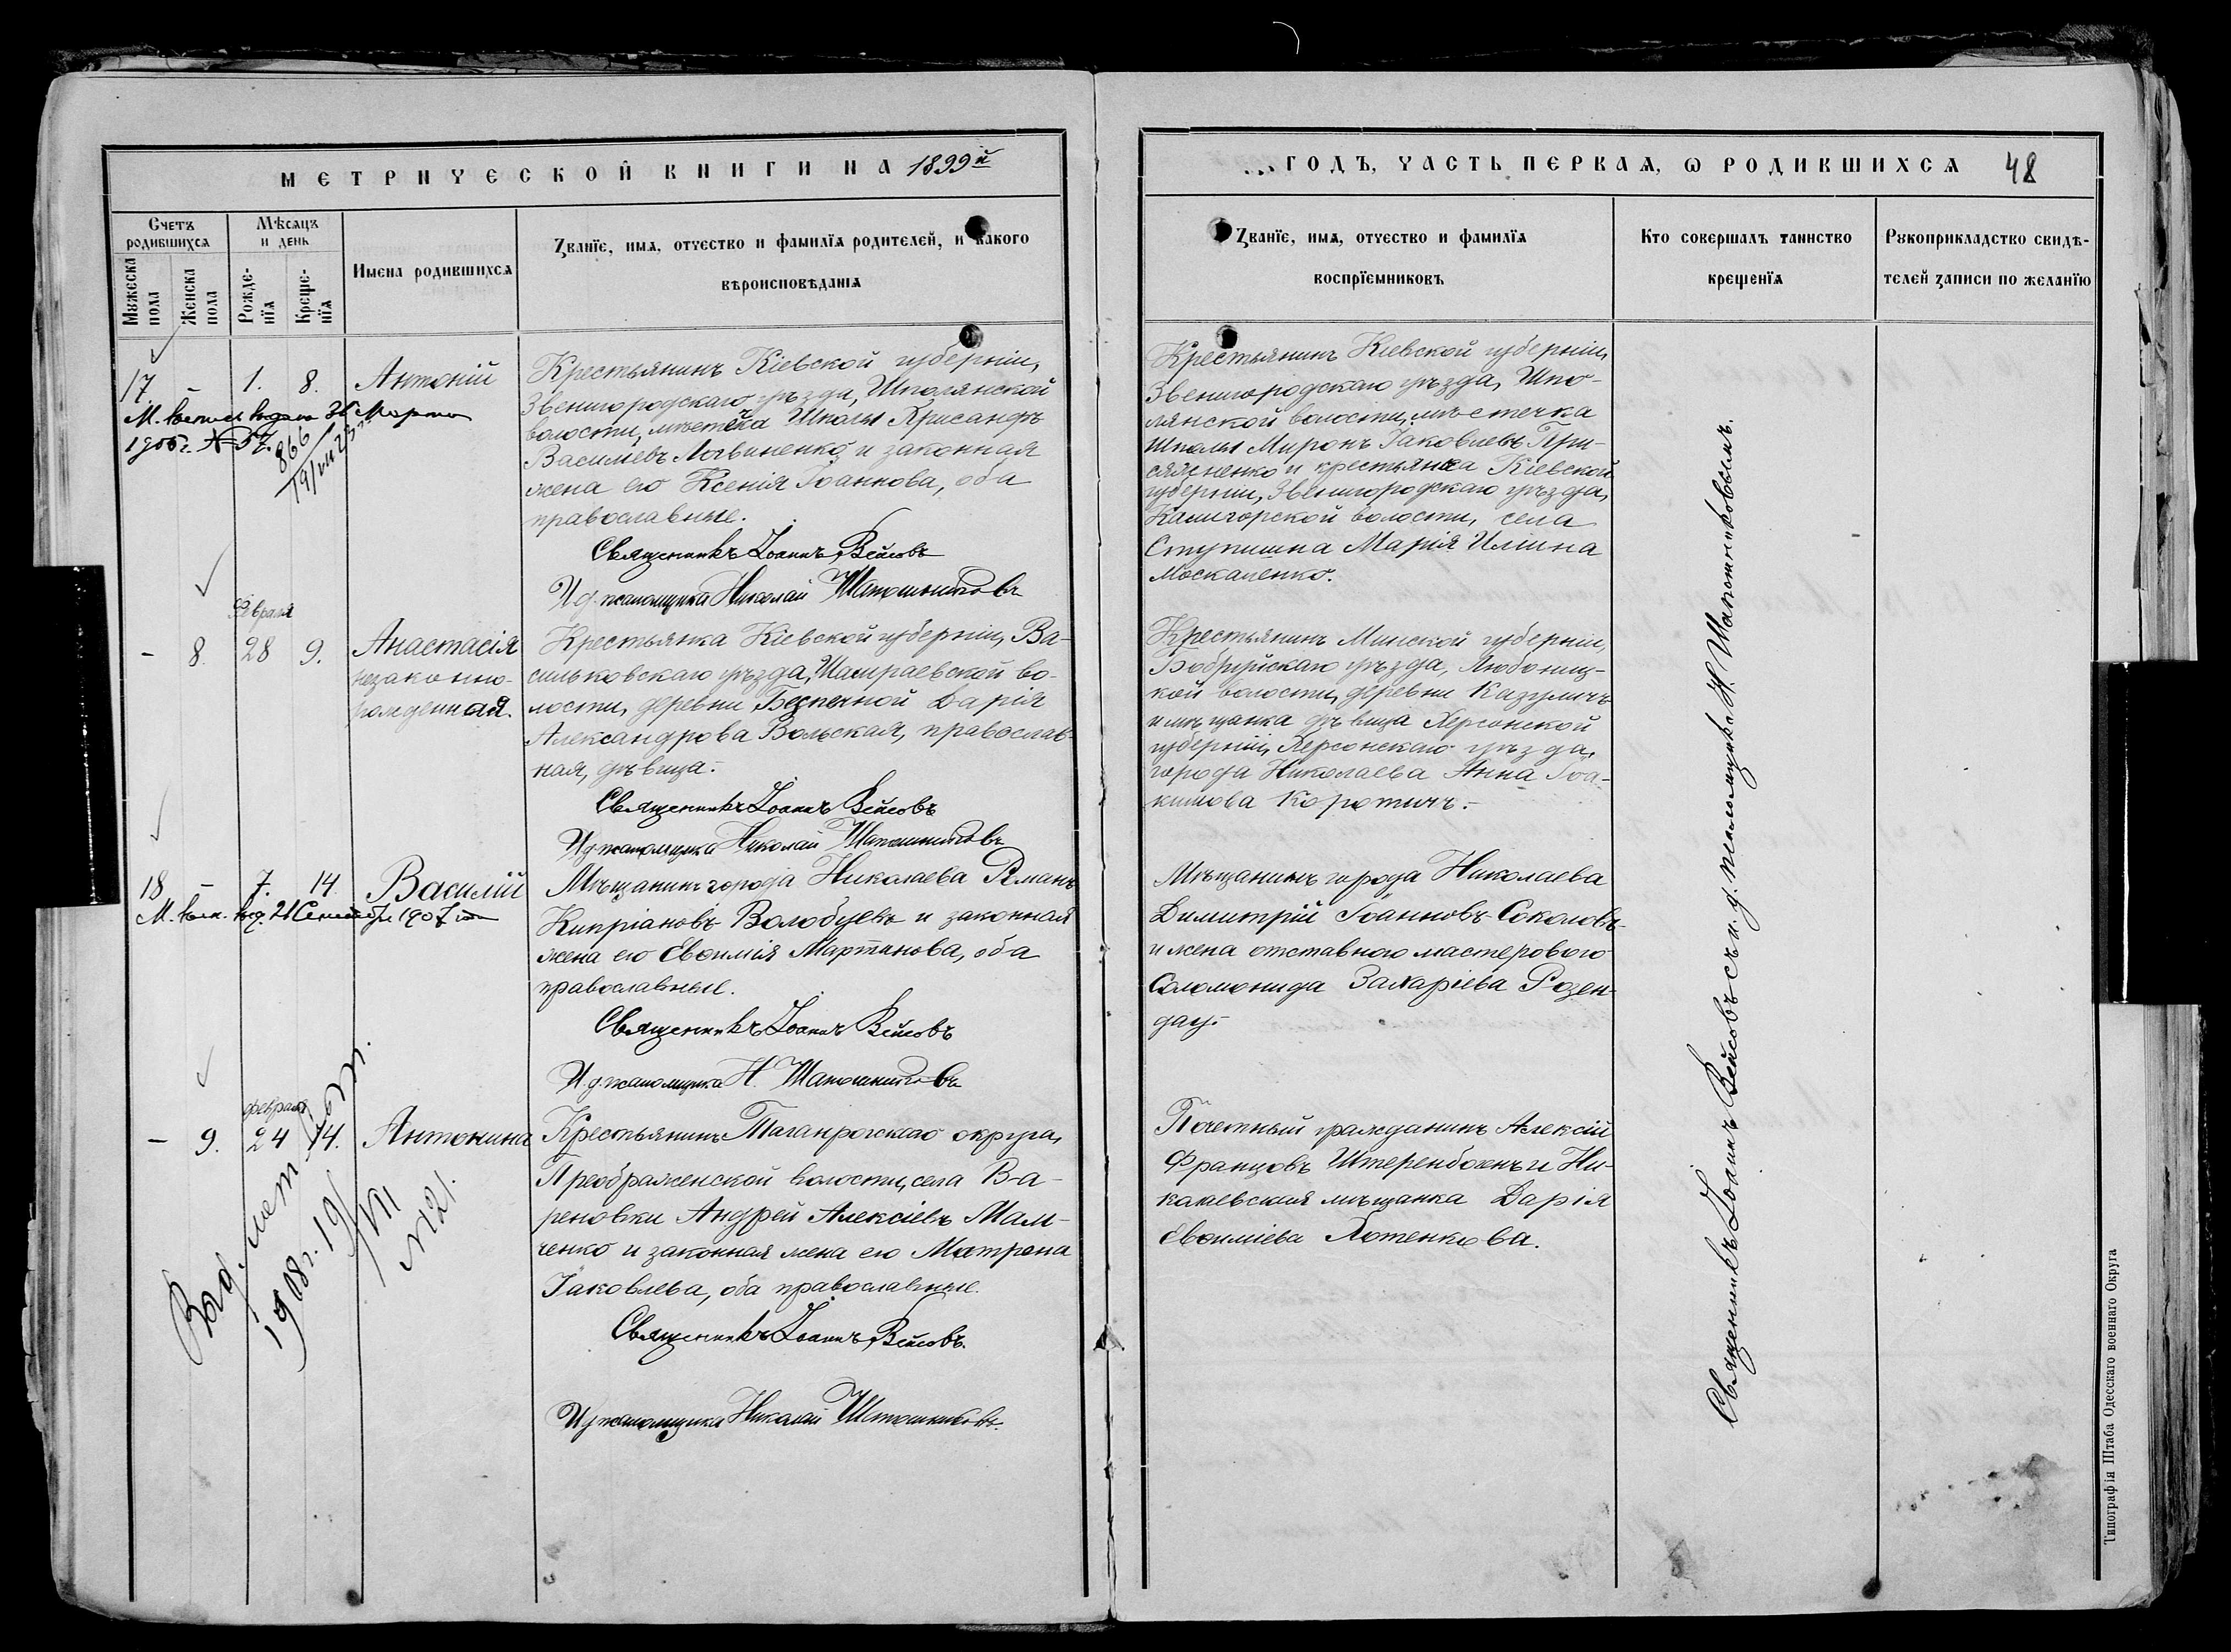 МЕТРИЧЕСКОЙ КНИГИ НА 1899й
ГОДЪ, ЧАСТЬ ПЕРВАЯ, Ѡ РОДИВШИХСЯ 48
Счетъ родившихся
Мужеска пола
Женска пола
Мѣсяцъ и день
Рожде-нїя
Креще-нїя
Имена родившихся
Званїе, имя, отчество и фамилїя родителей, и какого
вѣроисповѣданїя
Званїе, имя, отчество и фамилїя
воспрїемниковъ
Кто совершалъ таинство
крещенїя
Рукоприкладство свидѣ-
телей записи по желанїю
17. - 1. 8. Антоній
Марта
866
Крестьянинъ Кіевской губерніи,
Звенигородскаго уѣзда, Шполянской
волости, мѣстечка Шполы Хрисанфъ
Василіевъ Логвиненко и законная
жена его Ксенія Іоаннова, оба
православные.
Священникъ Іоаннъ Вейсовъ
И д. псаломщика Николай Шапошниковъ
Крестьянинъ Кіевской губерніи,
Звенигородскаго уѣзда, Шпо-
лянской волости, мѣстечка
Шполы Миронъ Іаковлевъ При-
сяжненко и крестьянка Кіевской
губерніи, Звенигородскаго уѣзда,
Калигорской волости, села
Ступишна Марія Иліина
Москаленко.
Февраля
- 8. 28 9. Анастасія
незаконно-
рожденная.
Крестьянка Кіевской губерніи, Ва-
сильковскаго уѣзда, Шамраевской во-
лости, деревни Безпечной Дарія
Александрова Вольская, православ-
ная, дѣвица.
Священникъ Іоаннъ Вейсовъ
И д псаломщика Николай Шапошниковъ
Крестьянинъ Минской губерніи,
Бобруйскаго уѣзда, Любониц-
кой волости, деревни Казуличъ
и мѣщанка дѣвица Херсонской
губерніи, Херсонскаго уѣзда,
города Николаева Анна Іоа-
кимова Коротичъ.
18 - 7. 14 Василій
М. вып. выд. 21 Сентябр. 1907
Мѣщанинъ города Николаева Романъ
Кипріановъ Волобуевъ и законная
жена его Евѳимія Мартинова, оба
православные.
Священникъ Іоаннъ Вейсовъ
И д псаломщика Н. Шапошниковъ
Мѣщанинъ города Николаева
Димитрій Іоанновъ Соколовъ
и жена отставного мастерового
Соломонида Захаріева Розен-
февраля
- 9. 24 14. Антонина
Выд. мет.
1908 г. 19/VII
№ 121.
Крестьянинъ Таганрогскаго округа,
Преображенской волости, села Ва-
реновки Андрей Алексіевъ Мам-
ченко и законная жена его Матрона
Іаковлева, оба православные.
Священникъ Іоаннъ Вейсовъ.
И д псаломщика Николай Шапошниковъ.
Почетный гражданинъ Алексій
Францовъ Штеренбохнъ и Ни-
колаевская мѣщанка Дарія
Евѳиміева Хотенкова.
Священникъ Іоаннъ Вейсовъ съ и. д. псаломщика Н. Шапошниковымъ.
Типографія Штаба Одесскаго военнаго Округа